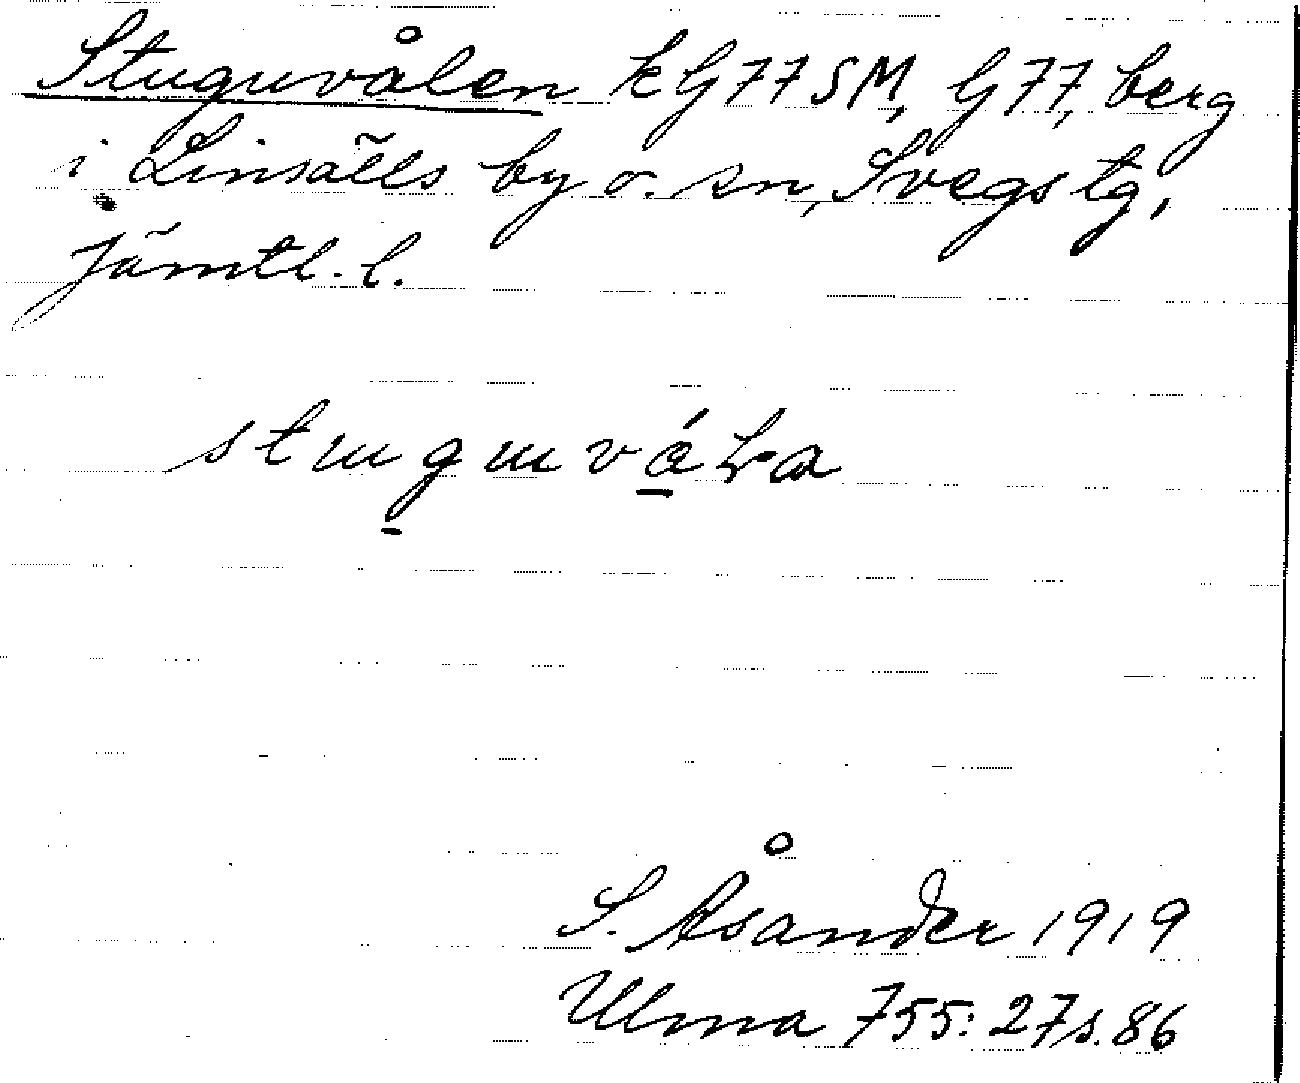 Stuguvålen k G77SM, G77, berg
i Linsälls by o. sn, Svegs tg,
Jämtl. l.
stuguváɫa
S. Åsander 1919
Ulma 755:27 s. 86